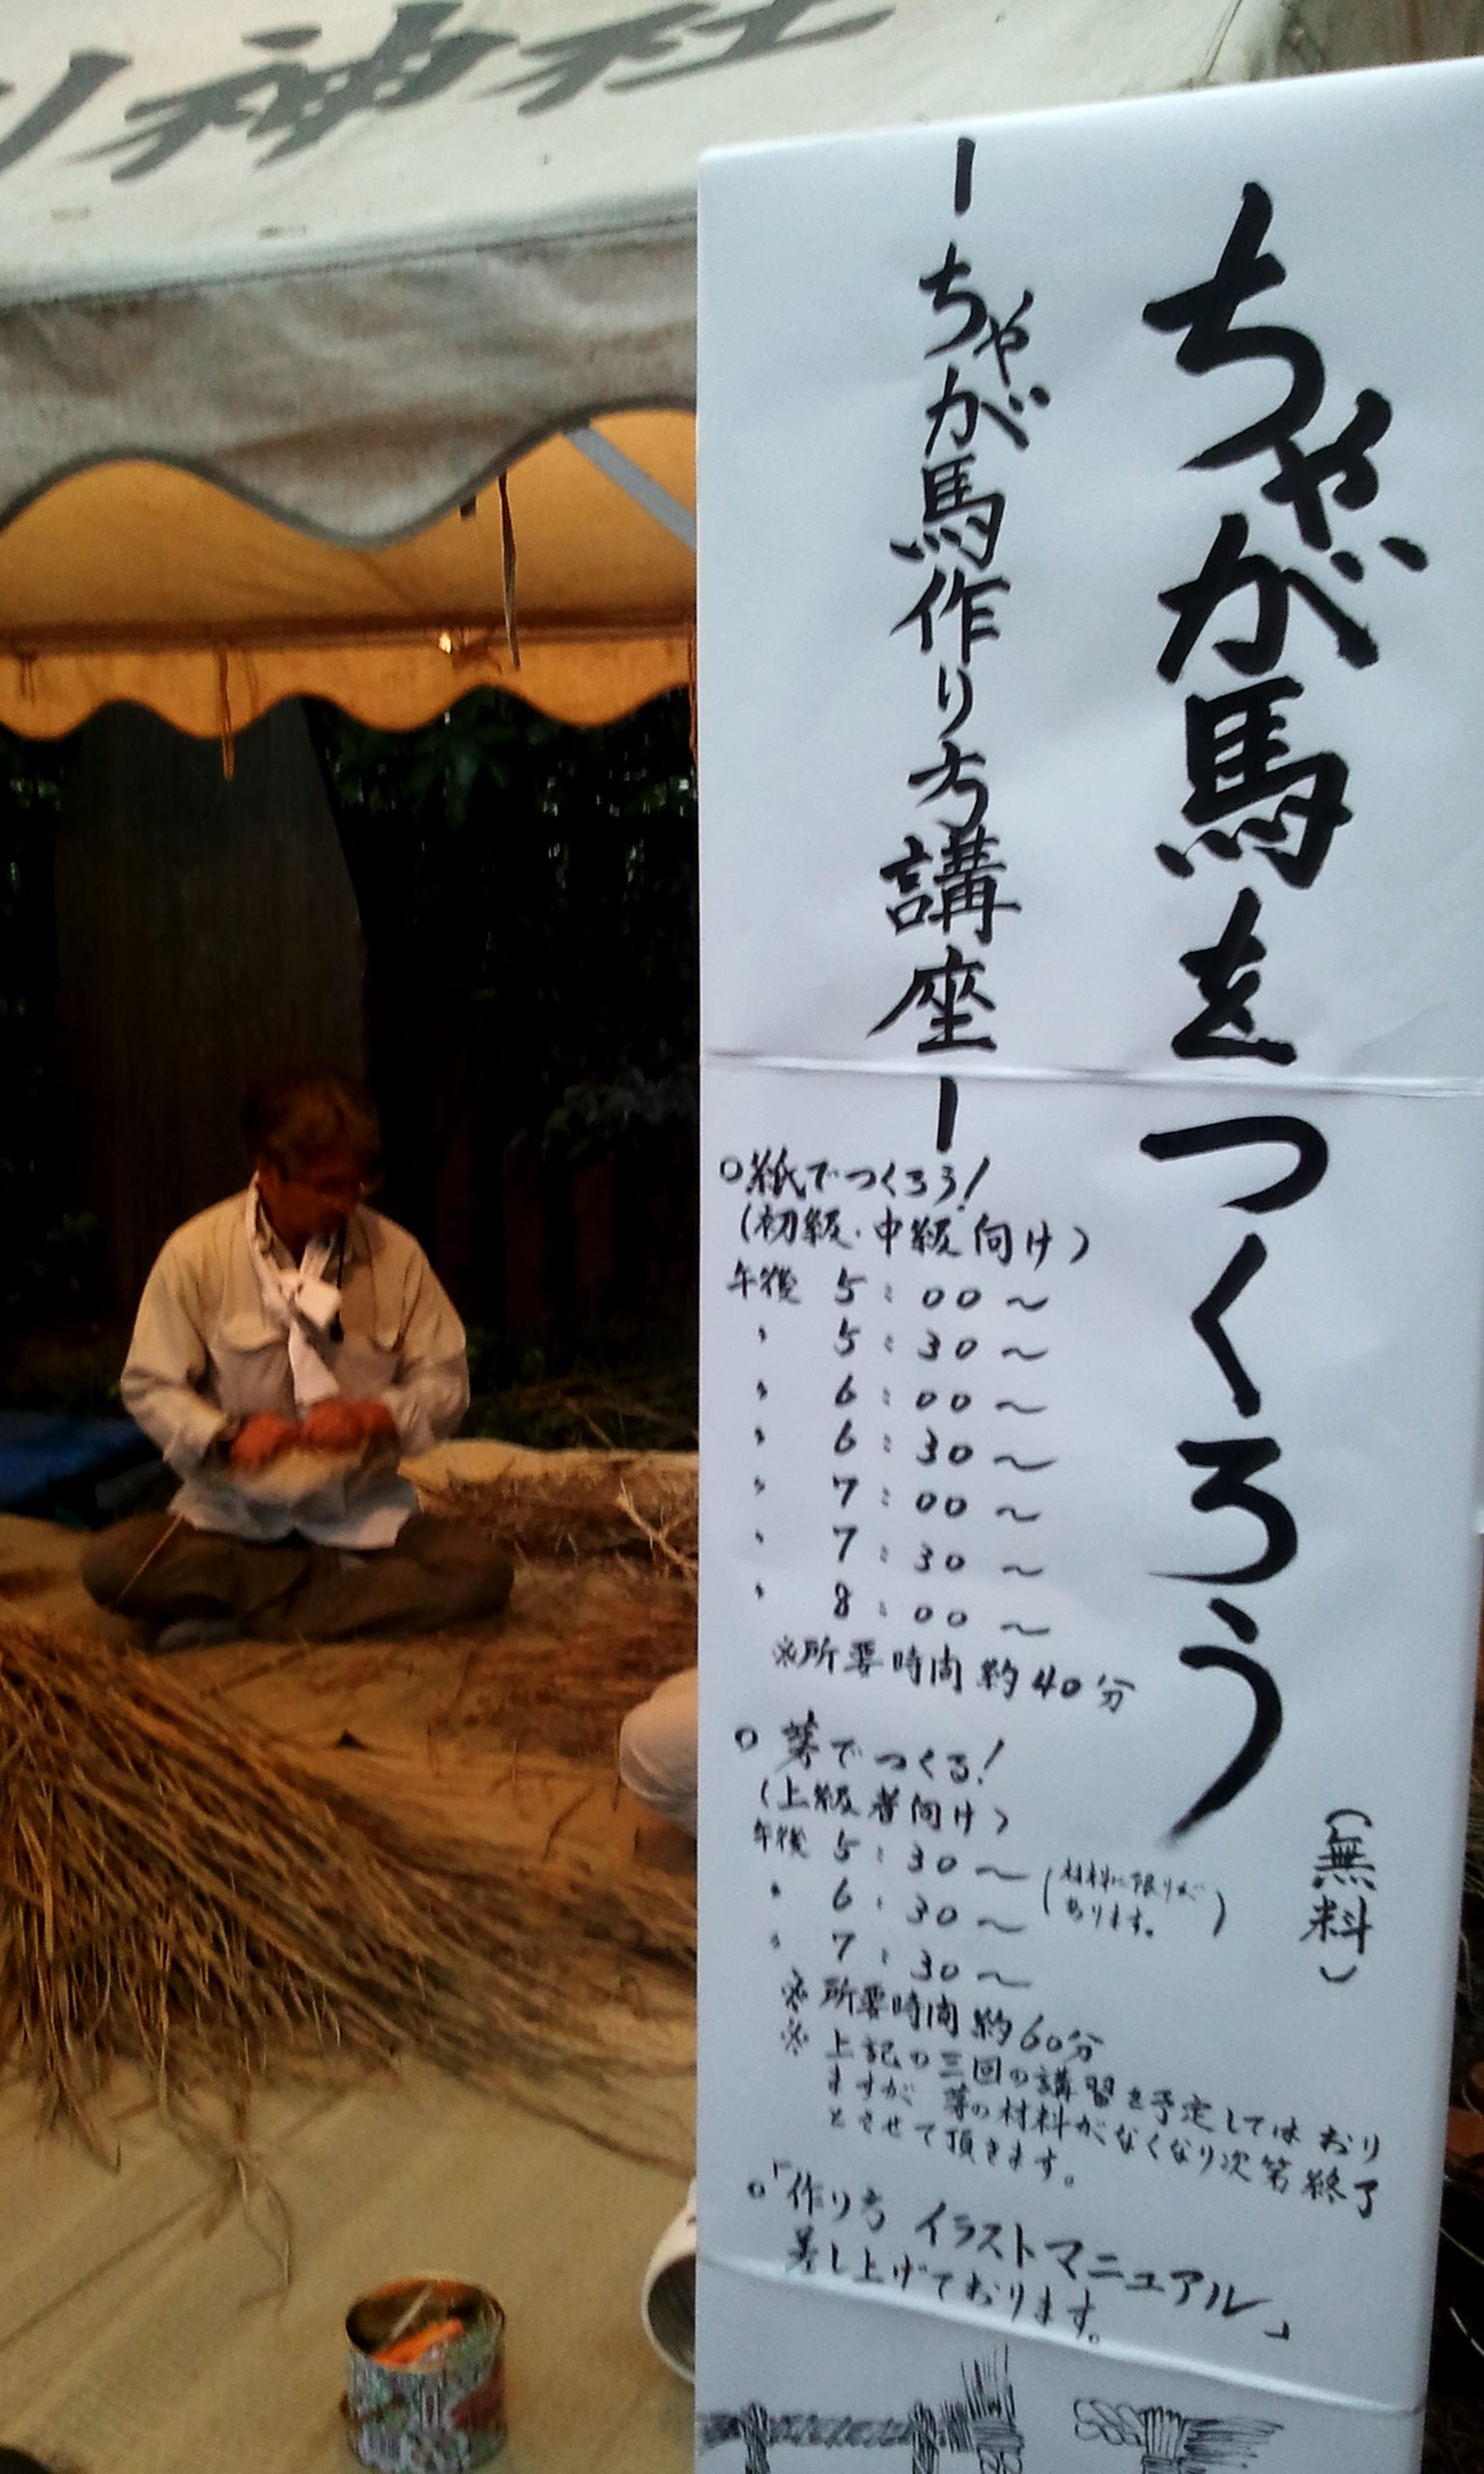 神社
ちゃが馬をつくろう
(無料)
ーちゃが馬作り方講座ー
○紙でつくろう!
(初級・中級向け)
午後 5:00〜
〃 5:30〜
〃 6:00〜
〃 6:30〜
〃 7:00〜
〃 7:30〜
〃 8:00〜
※所要時間約40分
○茅でつくる!
(上級者向け)
午後 5:30〜
(材料に限りが
あります。)
〃 6:30〜
〃 7:30〜
※所要時間約60分
※上記の三回の講習を予定してはおり
ますが茅の材料がなくなり次第終了
とさせて頂きます。
○「作り方 イラストマニュアル」
差し上げております。